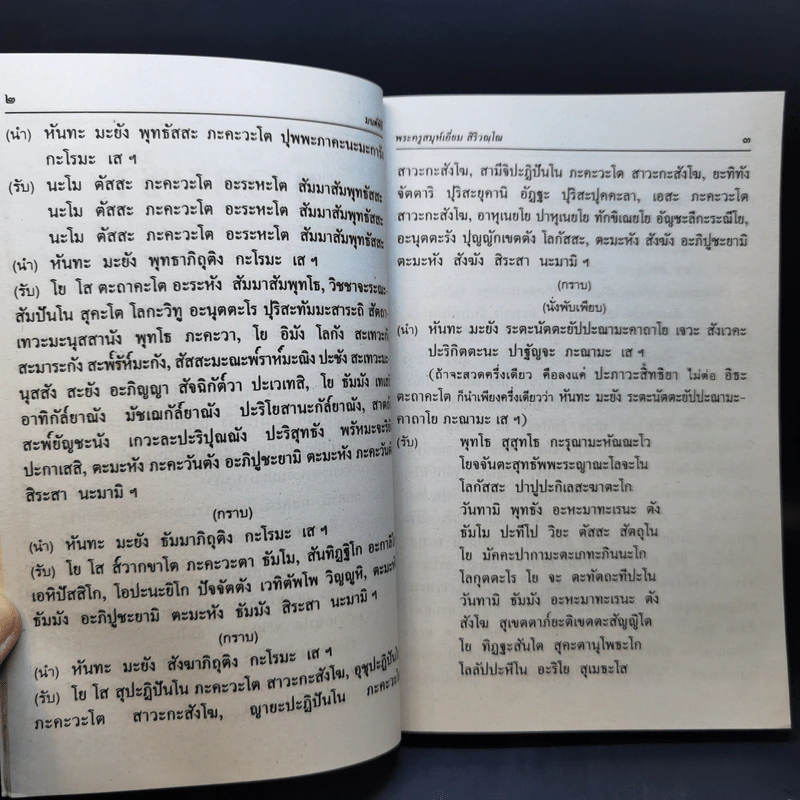 ๒
(นำ) หันทะ มะยัง พุทธัสสะ ภะคะวะโต ปุพพะภาคะนะมะการัง
กะโรมะ เส ฯ
(รับ) นะโม ตัสสะ ภะคะวะโต อะระหะโต สัมมาสัมพุทธัสสะ
นะโม ตัสสะ ภะคะวะโต อะระหะโต สัมมาสัมพุทธัสสะ
นะโม ตัสสะ ภะคะวะโต อะระหะโต สัมมาสัมพุทธัสสะ
(นำ) หันทะ มะยัง พุทธาภิถุติง กะโรมะ เส ฯ
(รับ) โย โส ตะถาคะโต อะระหัง สัมมาสัมพุทโธ, วิชชาจะระณะ-
สัมปันโน สุคะโต โลกะวิทู อะนุตตะโร ปุริสะทัมมะสาระถิ สัตถา
เทวะมะนุสสานัง พุทโธ ภะคะวา, โย อิมัง โลกัง สะเทวะกัง
สะมาระกัง สะพ์รัหมะกัง, สัสสะมะณะพ์ราห์มะณิง ปะชัง สะเทวะมะ-
นุสสัง สะยัง อะภิญญา สัจฉิกัต์วา ปะเวเทสิ, โย ธัมมัง เทเสสิ
อาทิกัล์ยาณัง มัชเฌกัล์ยาณัง ปะริโยสานะกัล์ยาณัง, สาตถัง
สะพ์ยัญชะนัง เกวะละปะริปุณณัง ปะริสุทธัง พรัหมะจะริยัง
ปะกาเสสิ, ตะมะหัง ภะคะวันตัง อะภิปูชะยามิ ตะมะหัง ภะคะวันตัง
สิระสา นะมามิ ฯ
(กราบ)
(นำ) หันทะ มะยัง ธัมมาภิถุติง กะโรมะ เส ฯ
(รับ) โย โส ส์วากขาโต ภะคะวะตา ธัมโม, สันทิฏฐิโก อะกาลิโก
เอหิปัสสิโก, โอปะนะยิโก ปัจจัตตัง เวทิตัพโพ วิญญูหิ, ตะมะหัง
ธัมมัง อะภิปูชะยามิ ตะมะหัง ธัมมัง สิระสา นะมามิ ฯ
(กราบ)
(นำ) หันทะ มะยัง สังฆาภิถุติง กะโรมะ เส ฯ
(รับ) โย โส สุปะฏิปันโน ภะคะวะโต สาวะกะสังโฆ, อุชุปะฏิปันโน
ภะคะวะโต สาวะกะสังโฆ, ญายะปะฏิปันโน ภะคะวะโต
พระครูสมุห์เอี่ยม สิริวณฺโณ ๓
สาวะกะสังโฆ, สามีจิปะฏิปันโน ภะคะวะโต สาวะกะสังโฆ, ยะทิทัง
จัตตาริ ปุริสะยุคานิ อัฏฐะ ปุริสะปุคคะลา, เอสะ ภะคะวะโต
สาวะกะสังโฆ, อาหุเนยโย ปาหุเนยโย ทักขิเณยโย อัญชะลีกะระณีโย,
อะนุตตะรัง ปุญญักเขตตัง โลกัสสะ, ตะมะหัง สังฆัง อะภิปูชะยามิ
ตะมะหัง สังฆัง สิระสา นะมามิ ฯ
(กราบ)
(นั่งพับเพียบ)
(นำ) หันทะ มะยัง ระตะนัตตะยัปปะณามะคาถาโย เจวะ สังเวคะ
ปะริกิตตะนะ ปาฐัญจะ ภะณามะ เส ฯ
(ถ้าจะสวดครึ่งเดียว คือลงแค่ ปะภาวะสิทธิยา ไม่ต่อ อิธะ
ตะถาคะโต ก็นำเพียงครึ่งเดียวว่า หันทะ มะยัง ระตะนัตตะยัปปะณามะ-
คาถาโย ภะณามะ เส ฯ)
(รับ) พุทโธ สุสุทโธ กะรุณามะหัณณะโว
โยจจันตะสุทธัพพะระญาณะโลจะโน
โลกัสสะ ปาปูปะกิเลสะฆาตะโก
วันทามิ พุทธัง อะหะมาทะเรนะ ตัง
ธัมโม ปะทีโป วิยะ ตัสสะ สัตถุโน
โย มัคคะปากามะตะเภทะภินนะโก
โลกุตตะโร โย จะ ตะทัตถะทีปะโน
วันทามิ ธัมมัง อะหะมาทะเรนะ ตัง
สังโฆ สุเขตตาภ์ยะติเขตตะสัญญิโต
โย ทิฏฐะสันโต สุคะตานุโพธะโก
โลลัปปะหีโน อะริโย สุเมธะโส